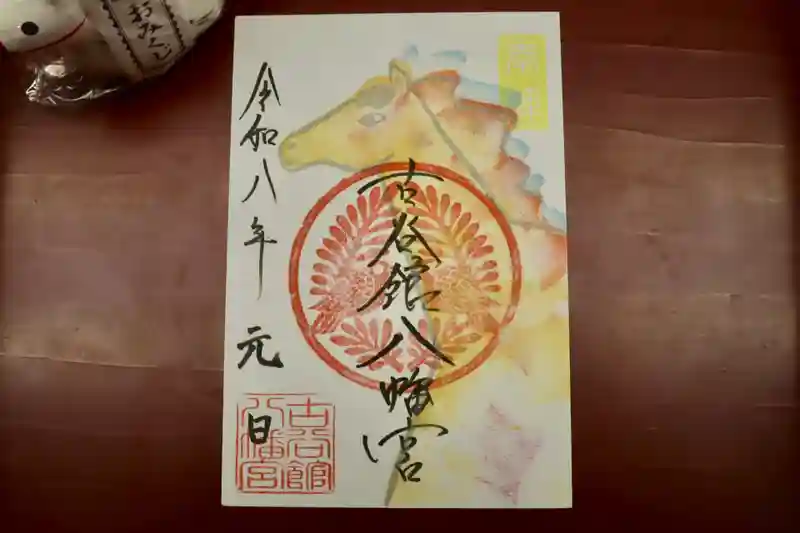 おみくじ
古谷館八幡宮
令和八年 元日
古谷館
八幡宮